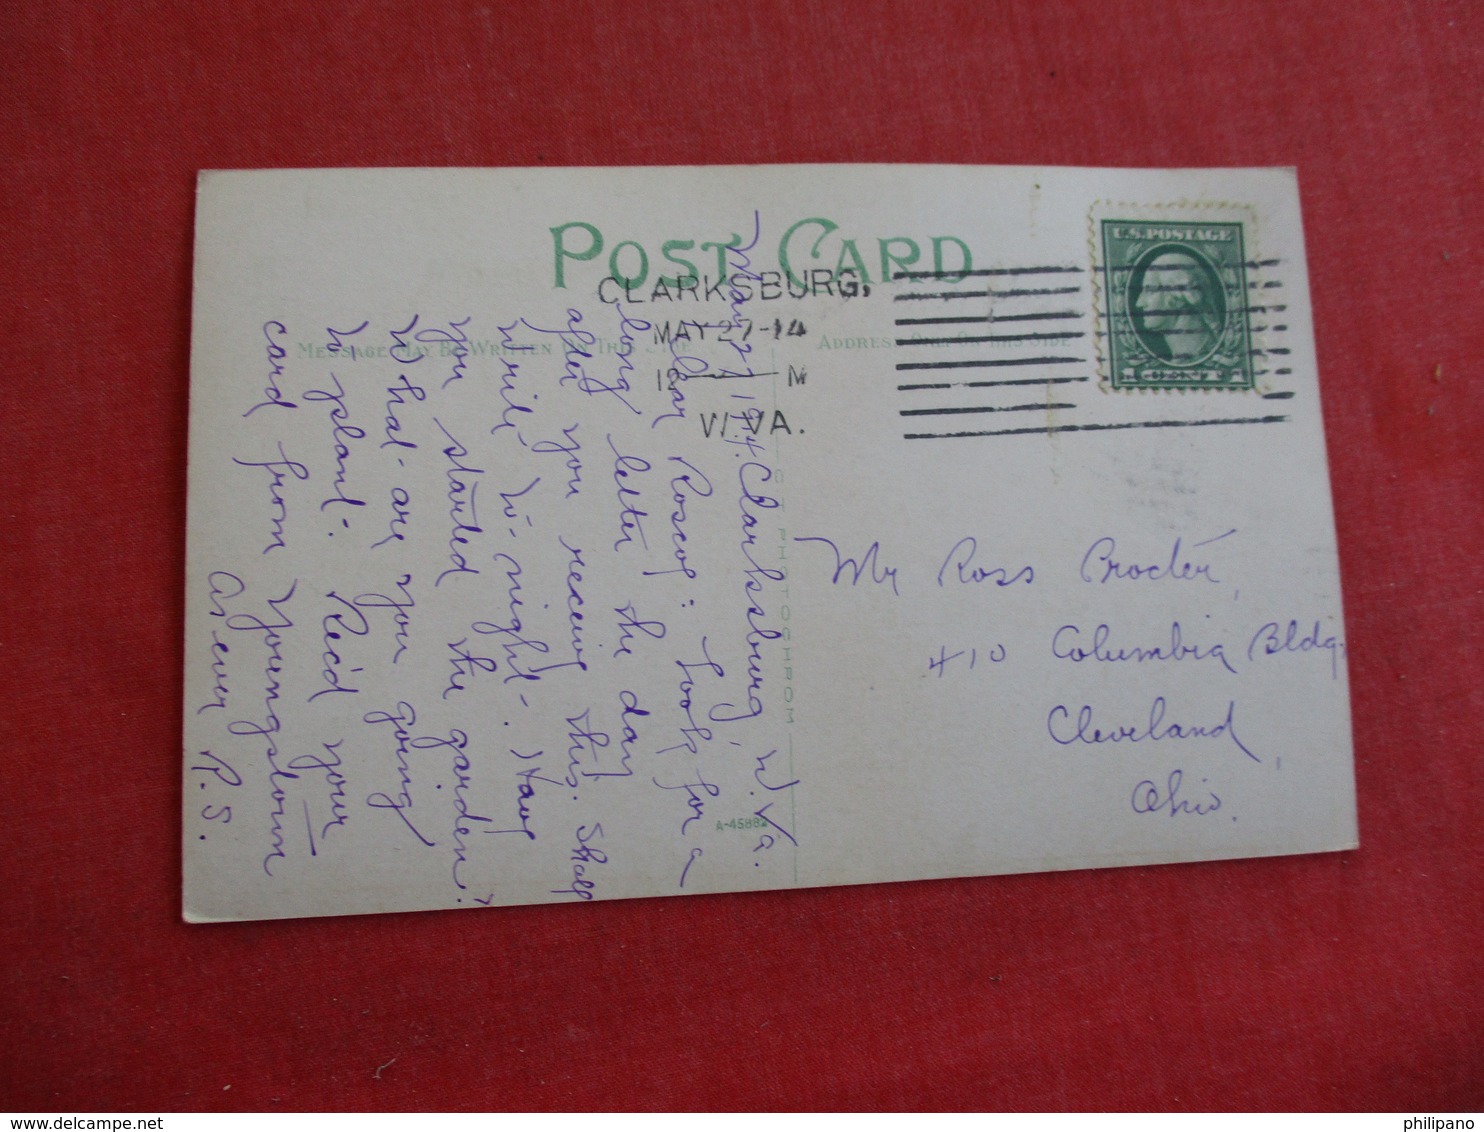 POST CARD
MESSAGE MAY BE WRITTEN ON THIS SIDE
ADDRESS ONLY ON THIS SIDE
CLARKSBURG,
MAY 27-14
12 M
W.VA.
U.S. POSTAGE
1 CENT 1
May 27, 1914. Clarksburg, W. Va.
Dear Roscoe: Look for a
long letter the day
after you receive this. Shall
write to-night. Have
you started the garden?
What are you going
to plant. Rec'd your
card from Youngstown
As ever R. S.
C. T. PHOTOCHROM
A-45882
Mr Ross Procter,
410 Columbia Bldg.
Cleveland,
Ohio.
philipano